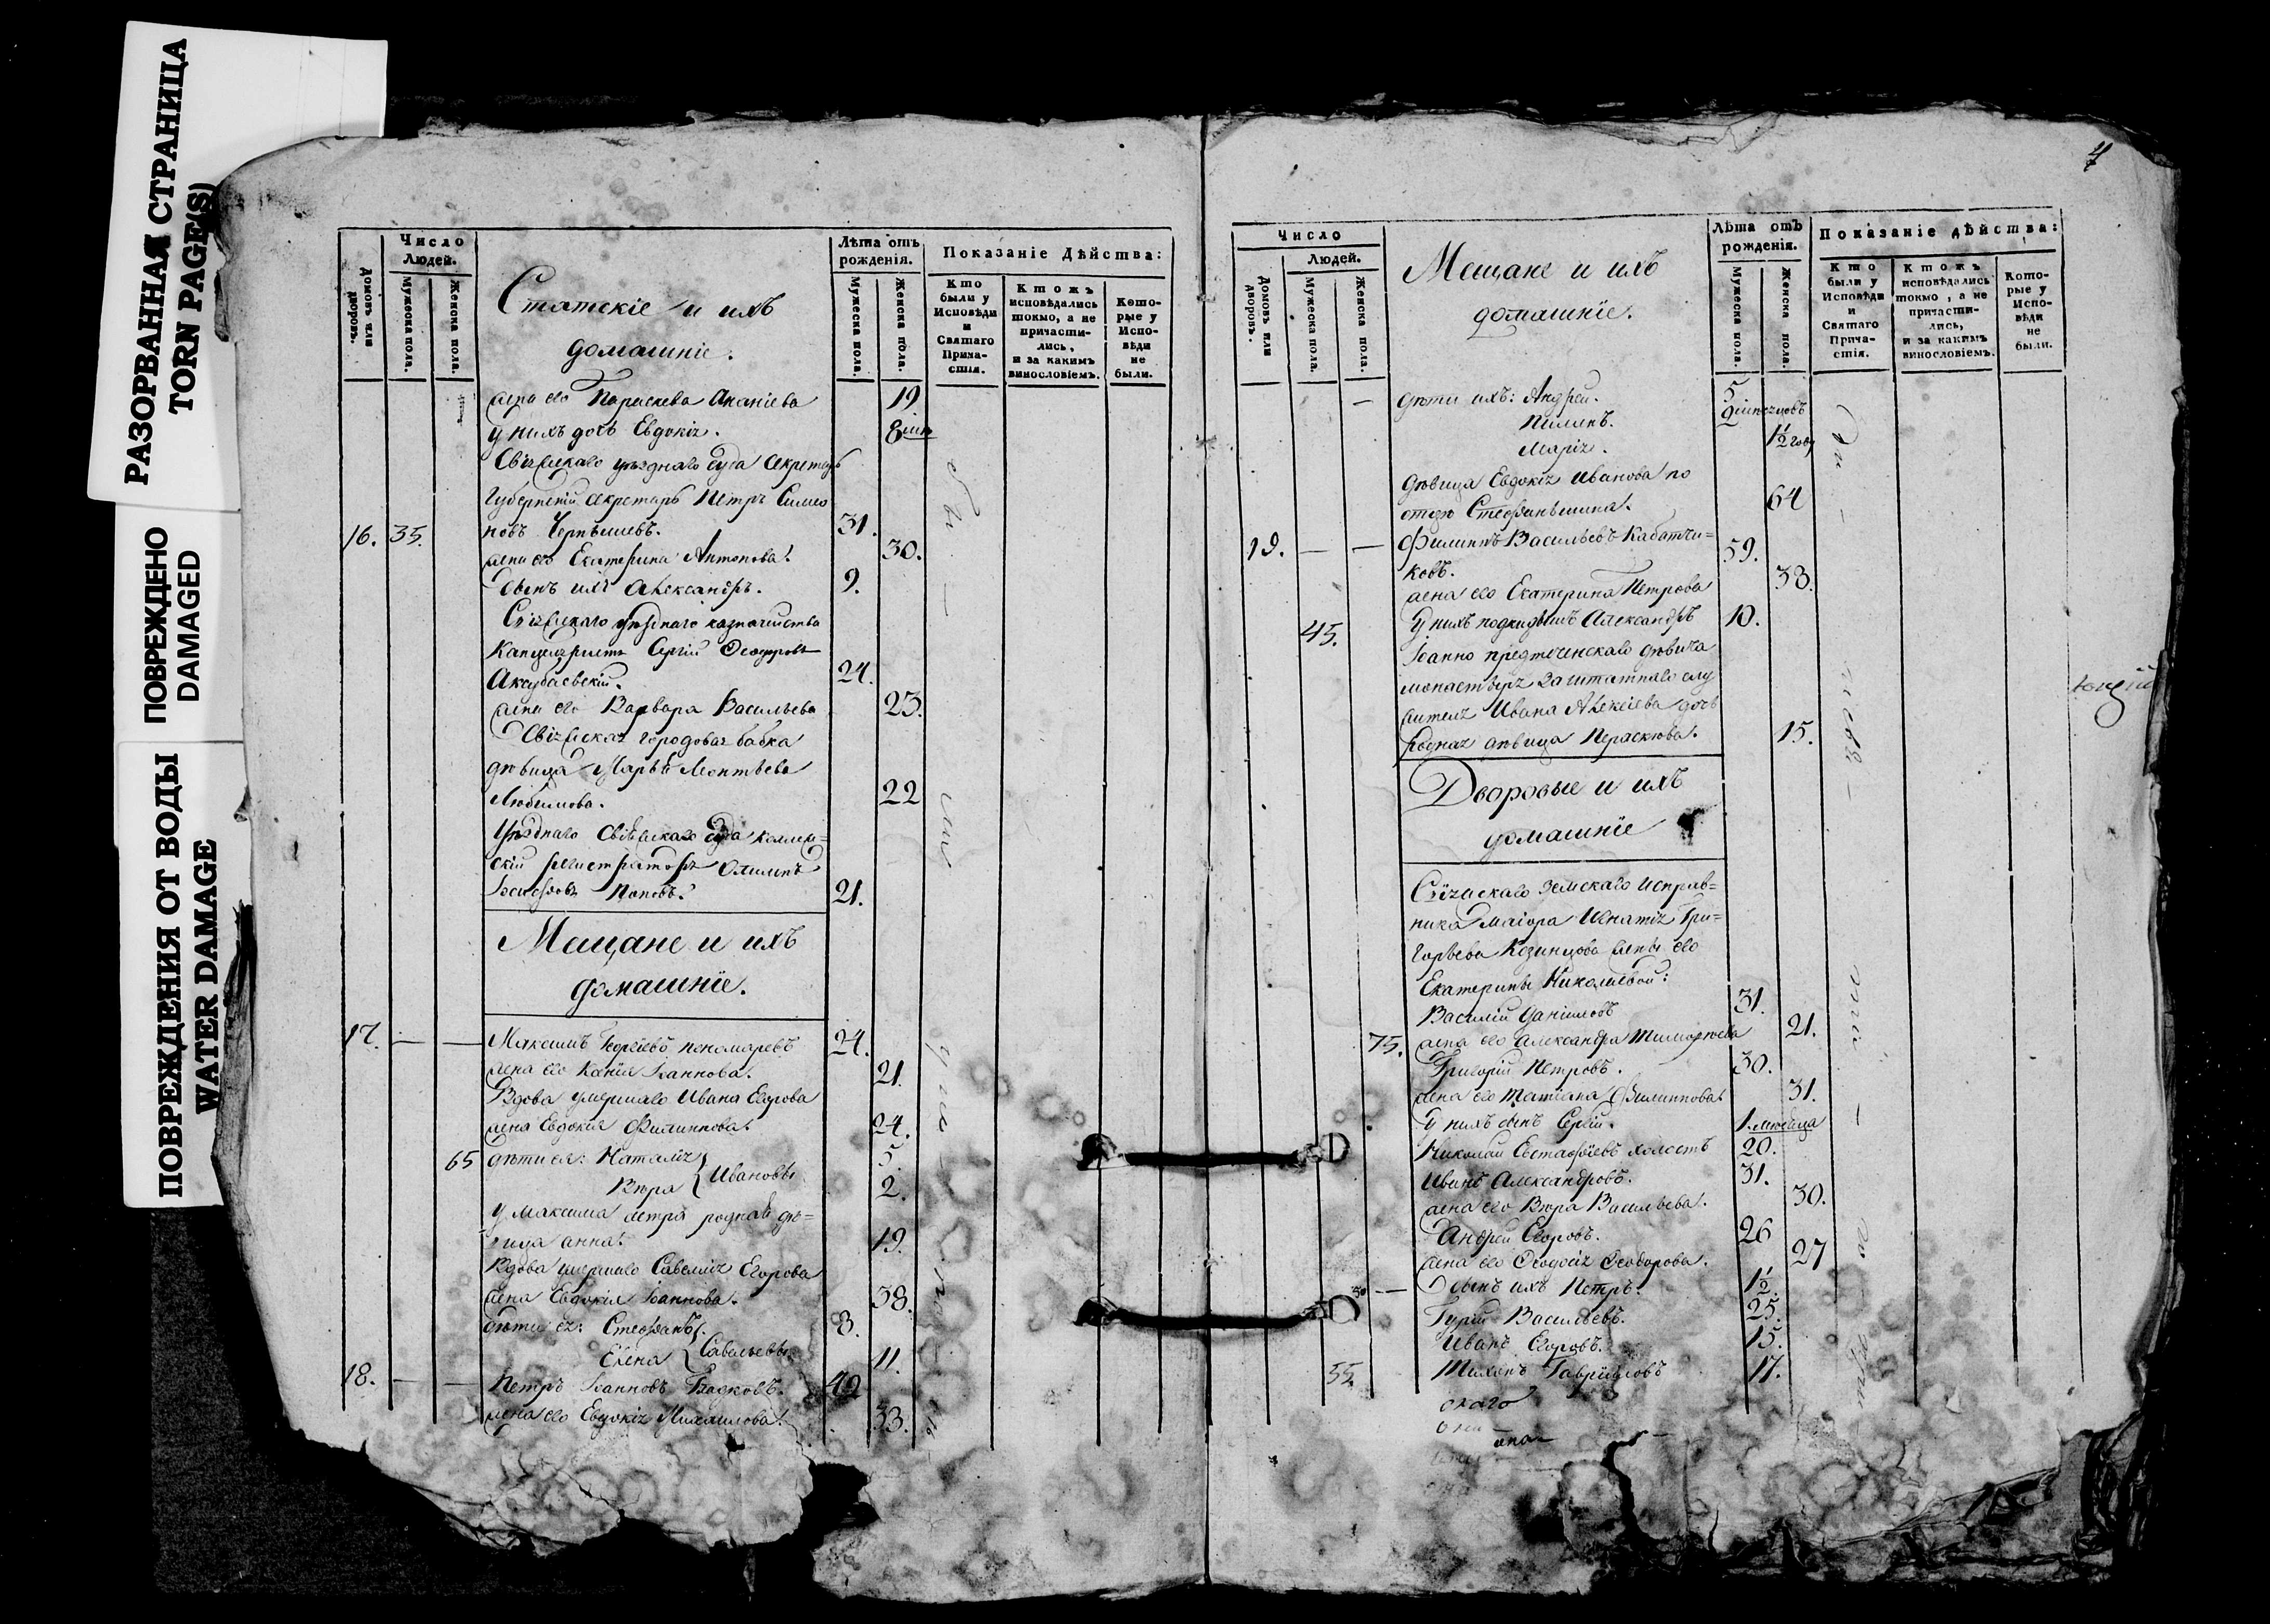 РАЗОРВАННАЯ СТРАНИЦА
TORN PAGE(S)
ПОВРЕЖДЕНО
DAMAGED
ПОВРЕЖДЕНИЯ ОТ ВОДЫ
WATER DAMAGE
Домовъ или дворовъ.
Число Людей.
Мужеска пола.
Женска пола.
Статскіе и ихъ
домашніе.
Лѣта отъ рожденія.
Мужеска пола.
Женска пола.
Показаніе Дѣйства:
Кто были у Исповѣди и Святаго Прича-стія.
Ктожъ исповѣдались токмо, а не причасти-лись, и за какимъ винословіемъ.
Кото-рые у Испо-вѣди не были.
жена его Параскева Ананіева 19.
у нихъ дочь Евдокія. 8
Свіяжскаго уѣзднаго суда Секретарь
Губернскій секретарь Петръ Симео
16. 35. новъ Чернышевъ. 31.
жена его Екатерина Антонова. 30.
Сынъ ихъ Александръ. 9.
Свіяжскаго уѣзднаго казначейства
Канцеляристъ Сергій Ѳеодоровъ
24.
жена его Варвара Васильева 23.
Свіяжская городовая бабка
дѣвица Марья Леонтьева
Любимова. 22
Уѣзднаго Свіяжскаго суда
регистраторъ
Поповъ. 21.
Мещане и ихъ
домашніе.
17. — — Максимъ Георгіевъ пономаревъ 24.
жена его Ксенія Іоаннова. 21.
Вдова умершаго Ивана Егорова
жена Евдокія Филиппова. 24.
65 дѣти ея: Наталія 5.
Вѣра } Ивановы 2.
у Максима сестра родная дѣ=
вица анна. 19.
Вдова умершаго Савелія Егорова
жена Евдокія Іоаннова. 38.
дѣти ея: Стефанъ 8.
Елена } Савельевы 11.
18. — — Петръ Іоанновъ 42
жена его Евдокія Михаилова. 33.
4
Число
Домовъ или дворовъ.
Людей.
Мужеска пола.
Женска пола.
Мещане и ихъ
домашніе.
Лѣта отъ рожденія.
Мужеска пола.
Женска пола.
Показаніе дѣйства:
Кто были у Исповѣди и Святаго Прича-стія.
Ктожъ исповѣдались токмо, а не причасти-лись, и за какимъ винословіемъ.
Кото-рые у Испо-вѣди не были.
— дѣти ихъ: Андрей. 5
Пименъ. 9
Марія. 1½ году
дѣвица Евдокія Иванова по
отцѣ 64
19. — — Филиппъ Васильевъ Кабатчи=
ковъ. 59.
жена его Екатерина Петрова 38.
45. У нихъ подкидышъ Александръ 10.
Іоанно предтеченскаго дѣвича
монастыря заштатнаго слу
жителя Ивана Алексіева дочь
родная дѣвица Параскева. 15.
Дворовые и ихъ
домашніе
Свіяжскаго земскаго исправ=
ника Маіора Игнатія Гри=
горьева жены его
Екатерины Николаевой:
Василій Даніиловъ 31.
75. жена его Александра Тимофеева 21.
Григорій Петровъ. 30.
жена его Татіана Филиппова. 31.
У нихъ сынъ Сергій. 1 месяца
Николай Евстафіевъ холостъ 20.
Иванъ Александровъ. 31.
жена его Вѣра Васильева. 30.
Андрей Егоровъ. 26
жена его Ѳеодосія Ѳеодорова. 27
50 — Сынъ ихъ Петръ. 1½
Гурій Васильевъ. 25.
Иванъ Егоровъ. 15.
55. Тихонъ Гавриловъ 17.